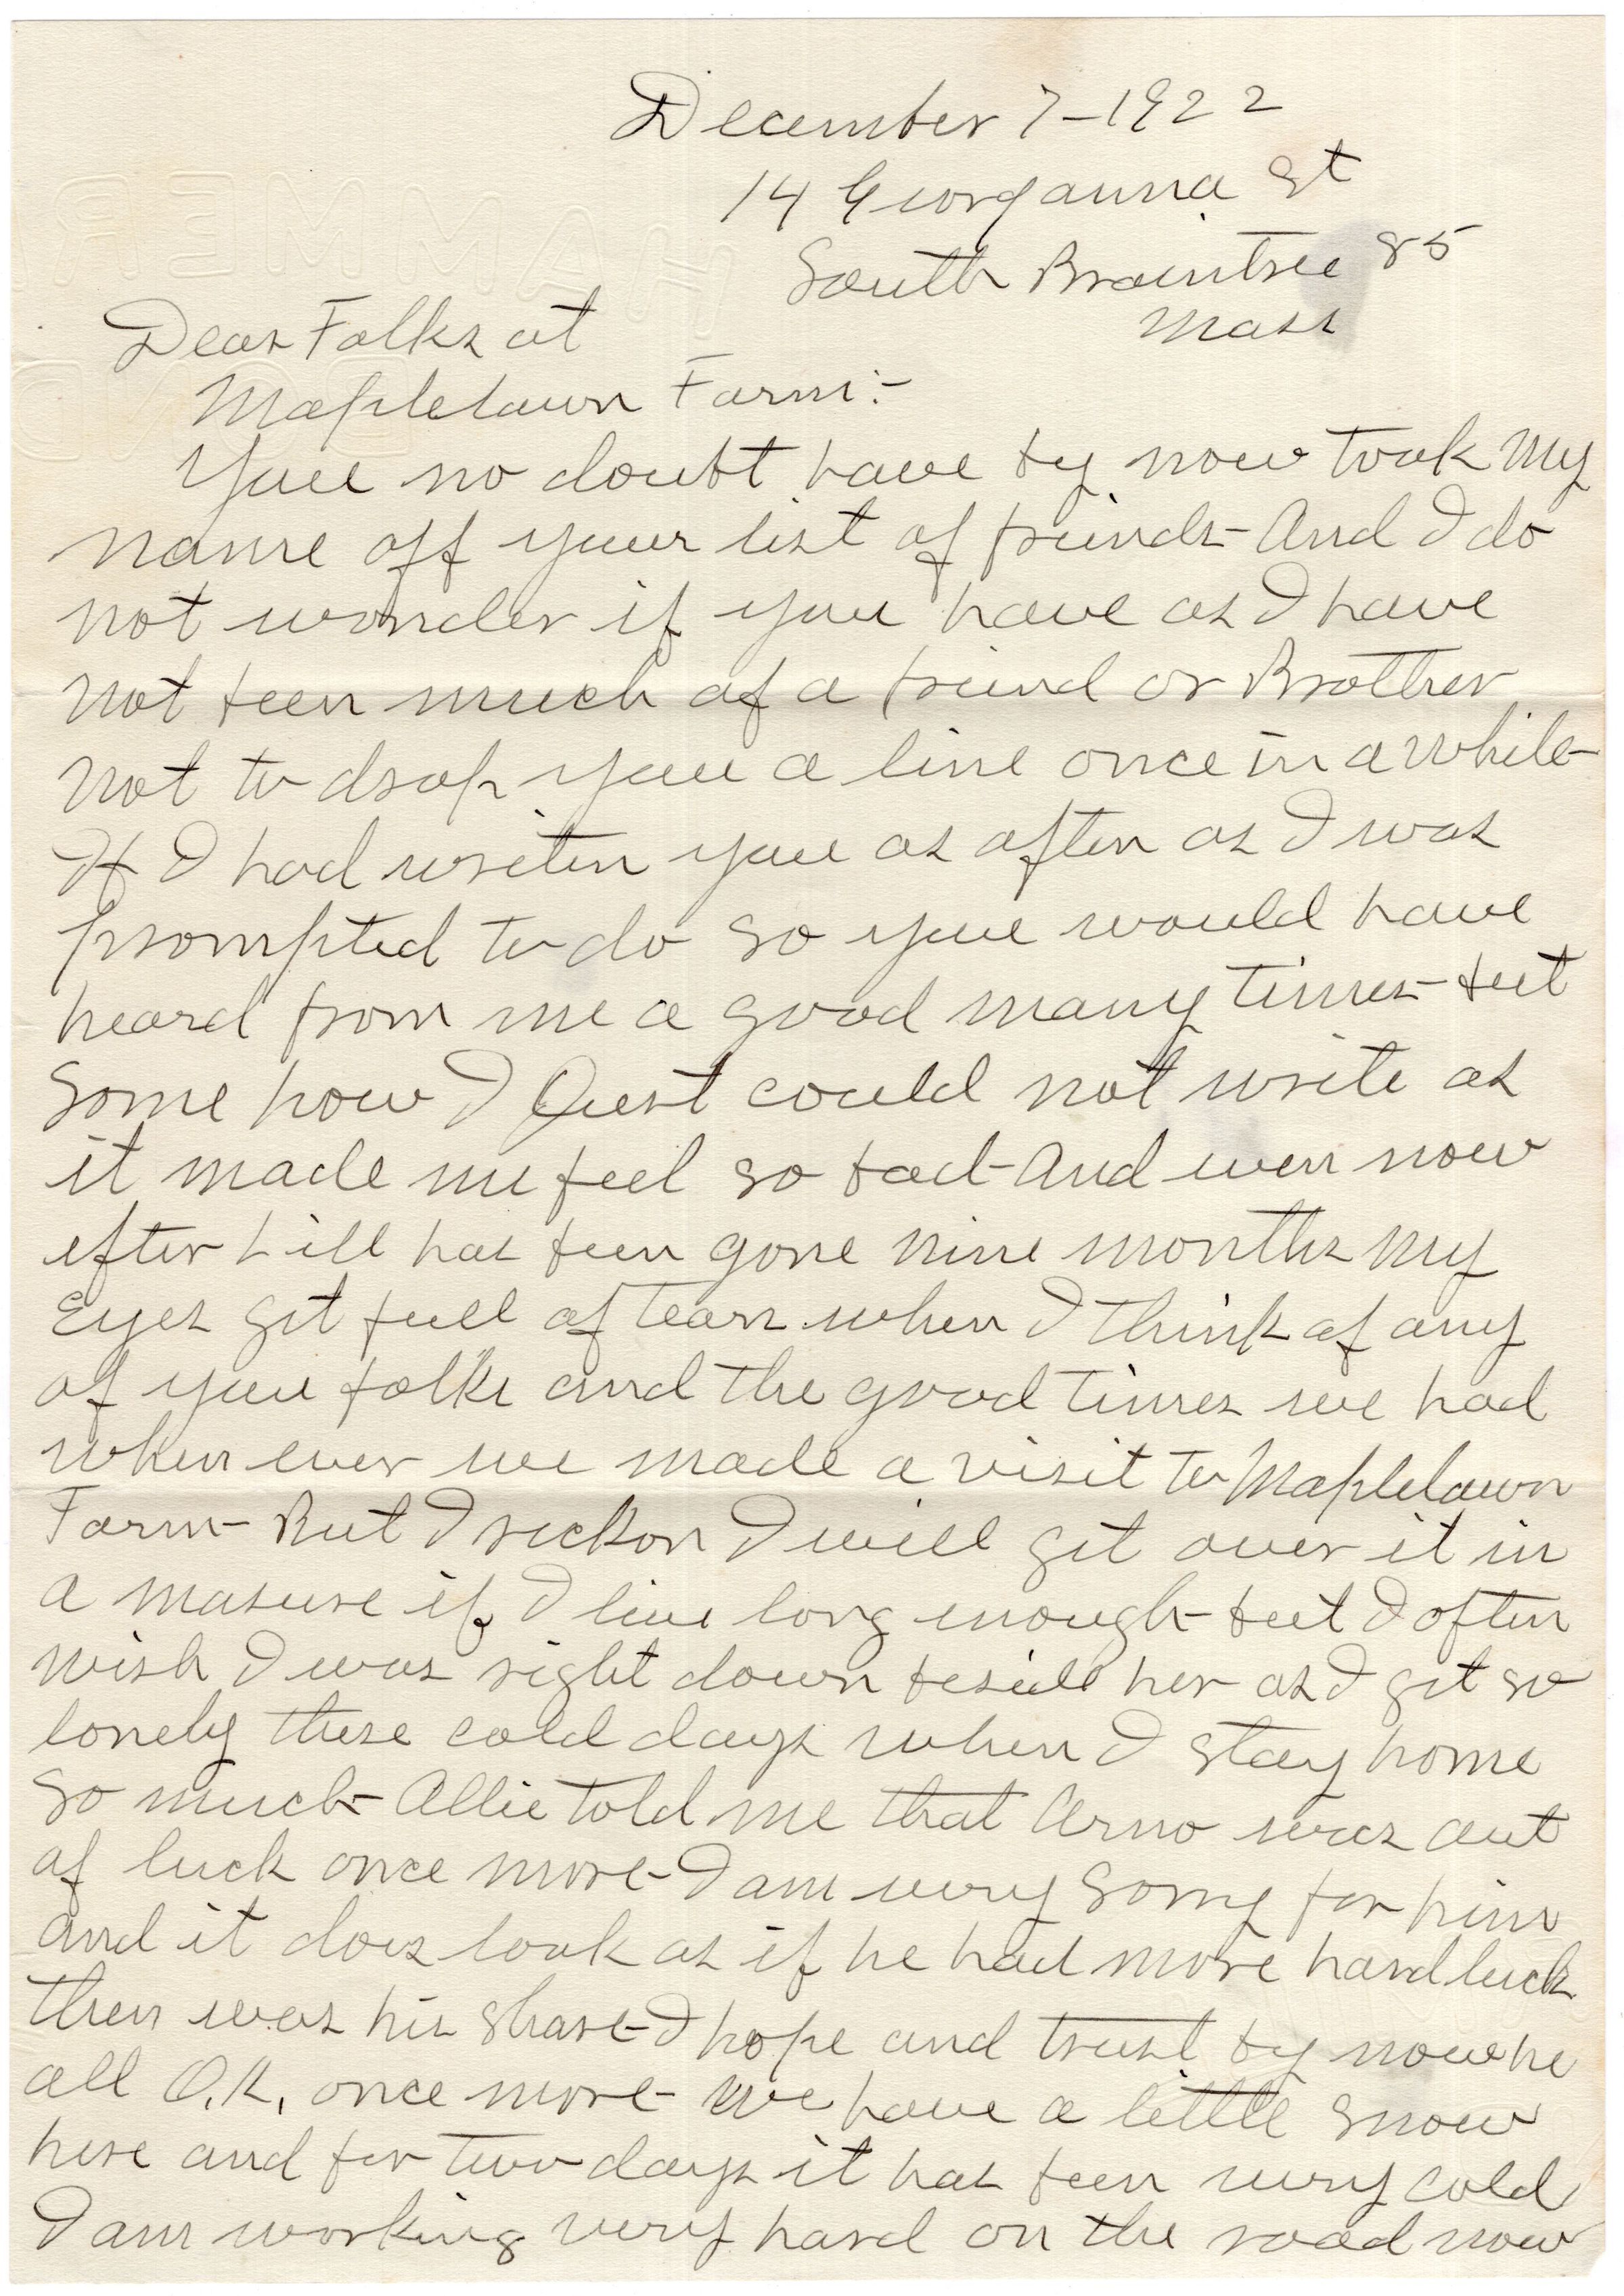 December 7-1922
14 Georganna St
South Braintree 85
Mass
Dear Folks at
Maplelawn Farm:-
You no doubt have by now took My
name off your list of friends- And I do
not wonder if you have as I have
Not been much of a friend or Brother
Not to drop you a line once in a while-
If I had writen you as often as I was
prompted to do so you would have
heard from me a good many times- but
Some how I Just could not write as
it made me feel so bad- And even now
after Lill has been gone nine months My
Eyes get full of tears when I think of any
of you folks and the good times we had
when ever we made a visit to Maplelawn
Farm- But I reckon I will get over it in
a masure if I live long enough- but I often
wish I was right down beside her as I get so
lonely these cold days when I stay home
so much- Allie told me that Arno was out
of luck once more- I am very Sorry for him
and it does look as if he had more hard luck
then was his share- I hope and trust by now he
all O.K. once more- We have a little snow
here and for two days it has been very cold
I am working very hard on the road now
HAMMER
BOND